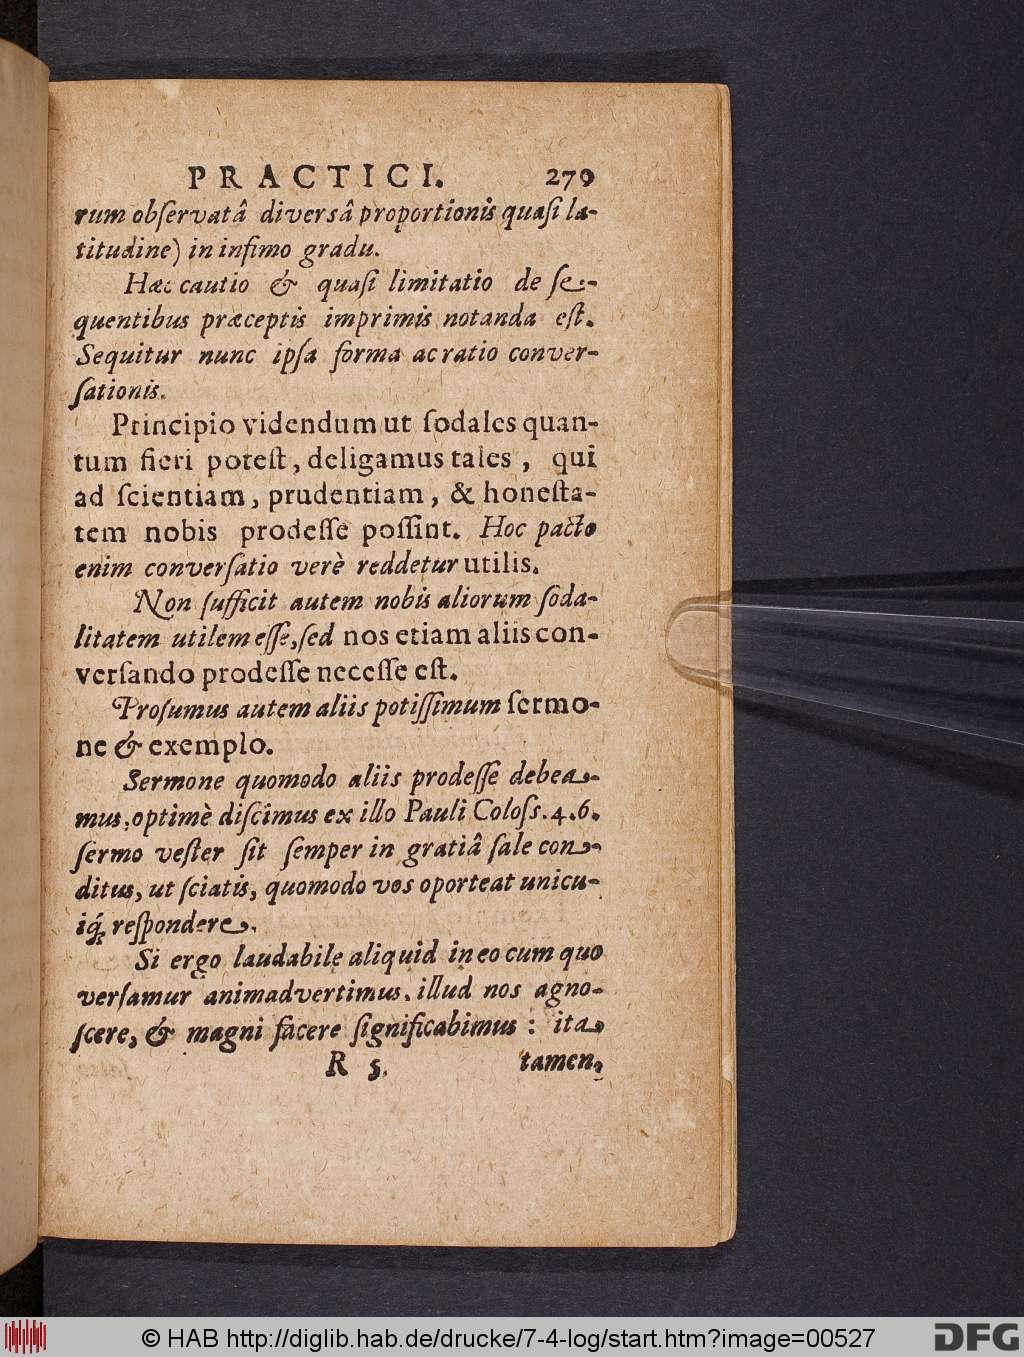 PRACTICI. 279
rum obſervatâ diversâ proportionis quaſi la-
titudine) in infimo gradu.
Hæc cautio & quaſi limitatio de ſe-
quentibus præceptis imprimis notanda eſt.
Sequitur nunc ipſa forma ac ratio conver-
ſationis.
Principio videndum ut ſodales quan-
tum fieri poteſt, deligamus tales, qui
ad ſcientiam, prudentiam, & honeſta-
tem nobis prodeſſe poſſint. Hoc pacto
enim converſatio verè reddetur utilis.
Non ſufficit autem nobis aliorum ſoda-
litatem utilem eſſe, ſed nos etiam aliis con-
verſando prodeſſe neceſſe eſt.
Proſumus autem aliis potiſſimum ſermo-
ne & exemplo.
Sermone quomodo aliis prodeſſe debea-
mus, optimè diſcimus ex illo Pauli Coloſs. 4. 6.
ſermo veſter ſit ſemper in gratiâ ſale con-
ditus, ut ſciatis, quomodo vos oporteat unicu-
iq́; reſpondere.
Si ergo laudabile aliquid in eo cum quo
verſamur animadvertimus, illud nos agno-
ſcere, & magni facere ſignificabimus: ita
R 5. tamen,
© HAB http://diglib.hab.de/drucke/7-4-log/start.htm?image=00527
DFG